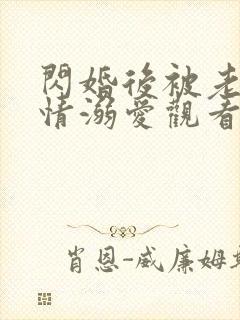 閃婚後被老
情溺愛觀看
肖恩-威廉姆斯